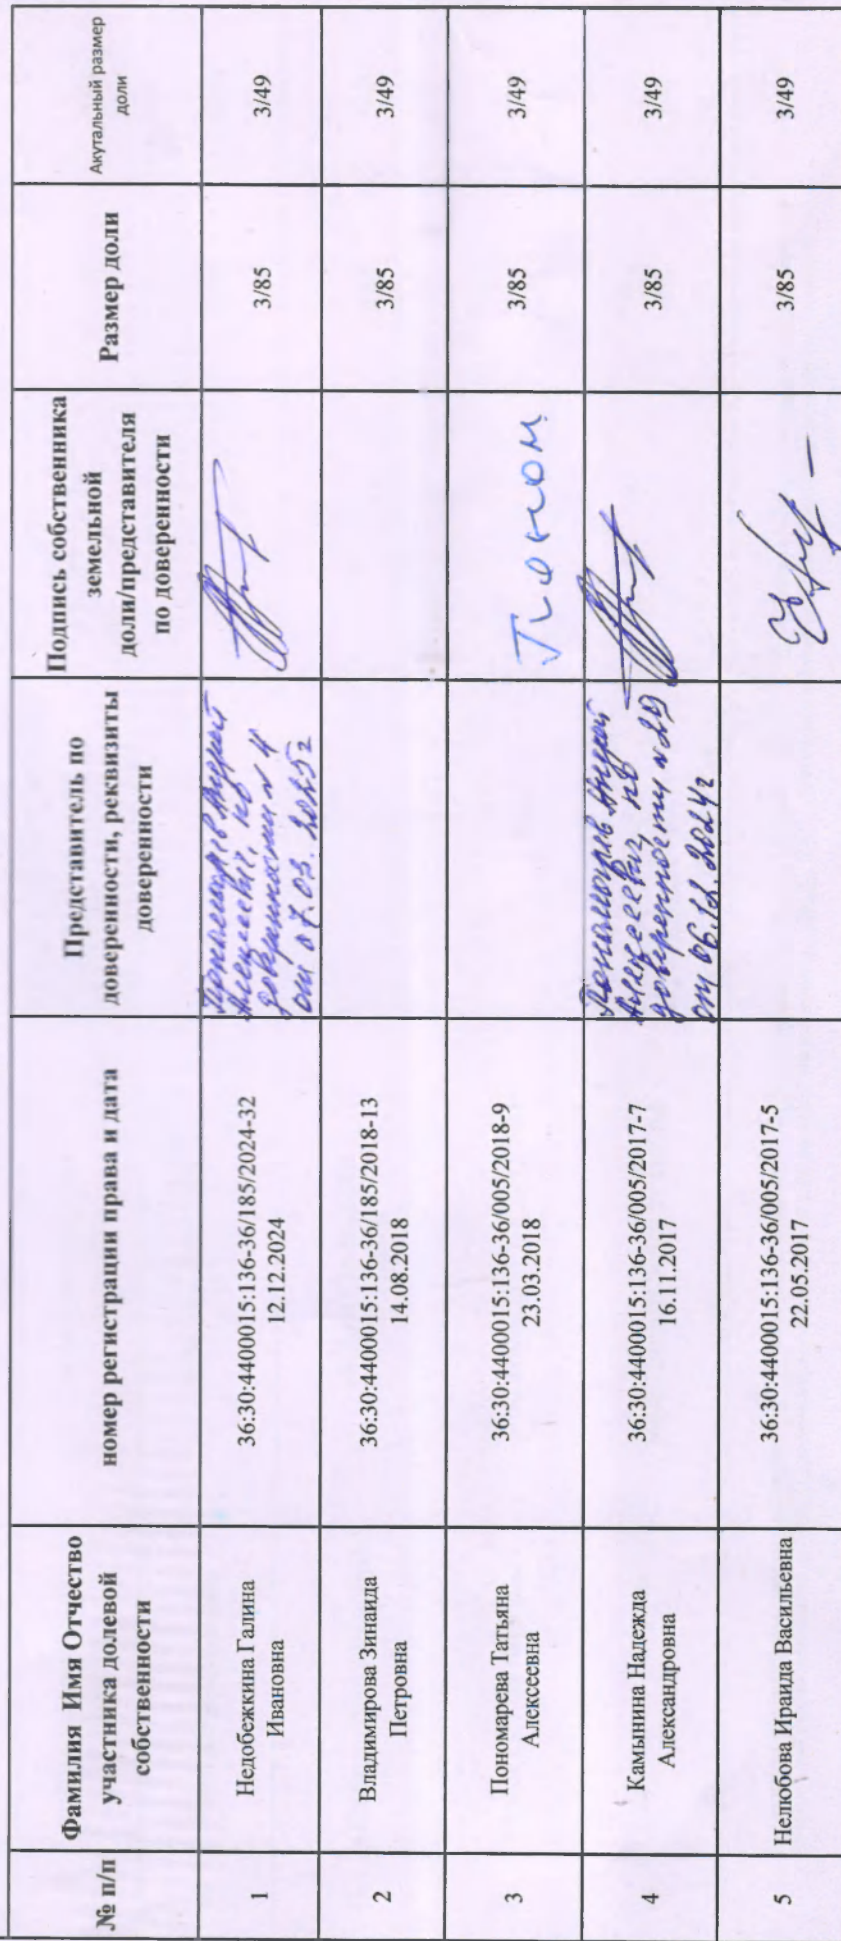 № п/п
Фамилия Имя Отчество
участника долевой
собственности
номер регистрации права и дата
Представитель по
доверенности, реквизиты
доверенности
Подпись собственника
земельной
доли/представителя
по доверенности
Размер доли
Акутальный размер
доли
1
Недобежкина Галина
Ивановна
36:30:4400015:136-36/185/2024-32
12.12.2024
Пономарев Андрей
Алексеевич, по
доверенности № 4
от 07.03.2025г
3/85
3/49
2
Владимирова Зинаида
Петровна
36:30:4400015:136-36/185/2018-13
14.08.2018
3/85
3/49
3
Пономарева Татьяна
Алексеевна
36:30:4400015:136-36/005/2018-9
23.03.2018
Поном
3/85
3/49
4
Камынина Надежда
Александровна
36:30:4400015:136-36/005/2017-7
16.11.2017
Пономарев Андрей
Алексеевич по
доверенности № 29
от 06.12.2024г
3/85
3/49
5
Нелюбова Ираида Васильевна
36:30:4400015:136-36/005/2017-5
22.05.2017
3/85
3/49